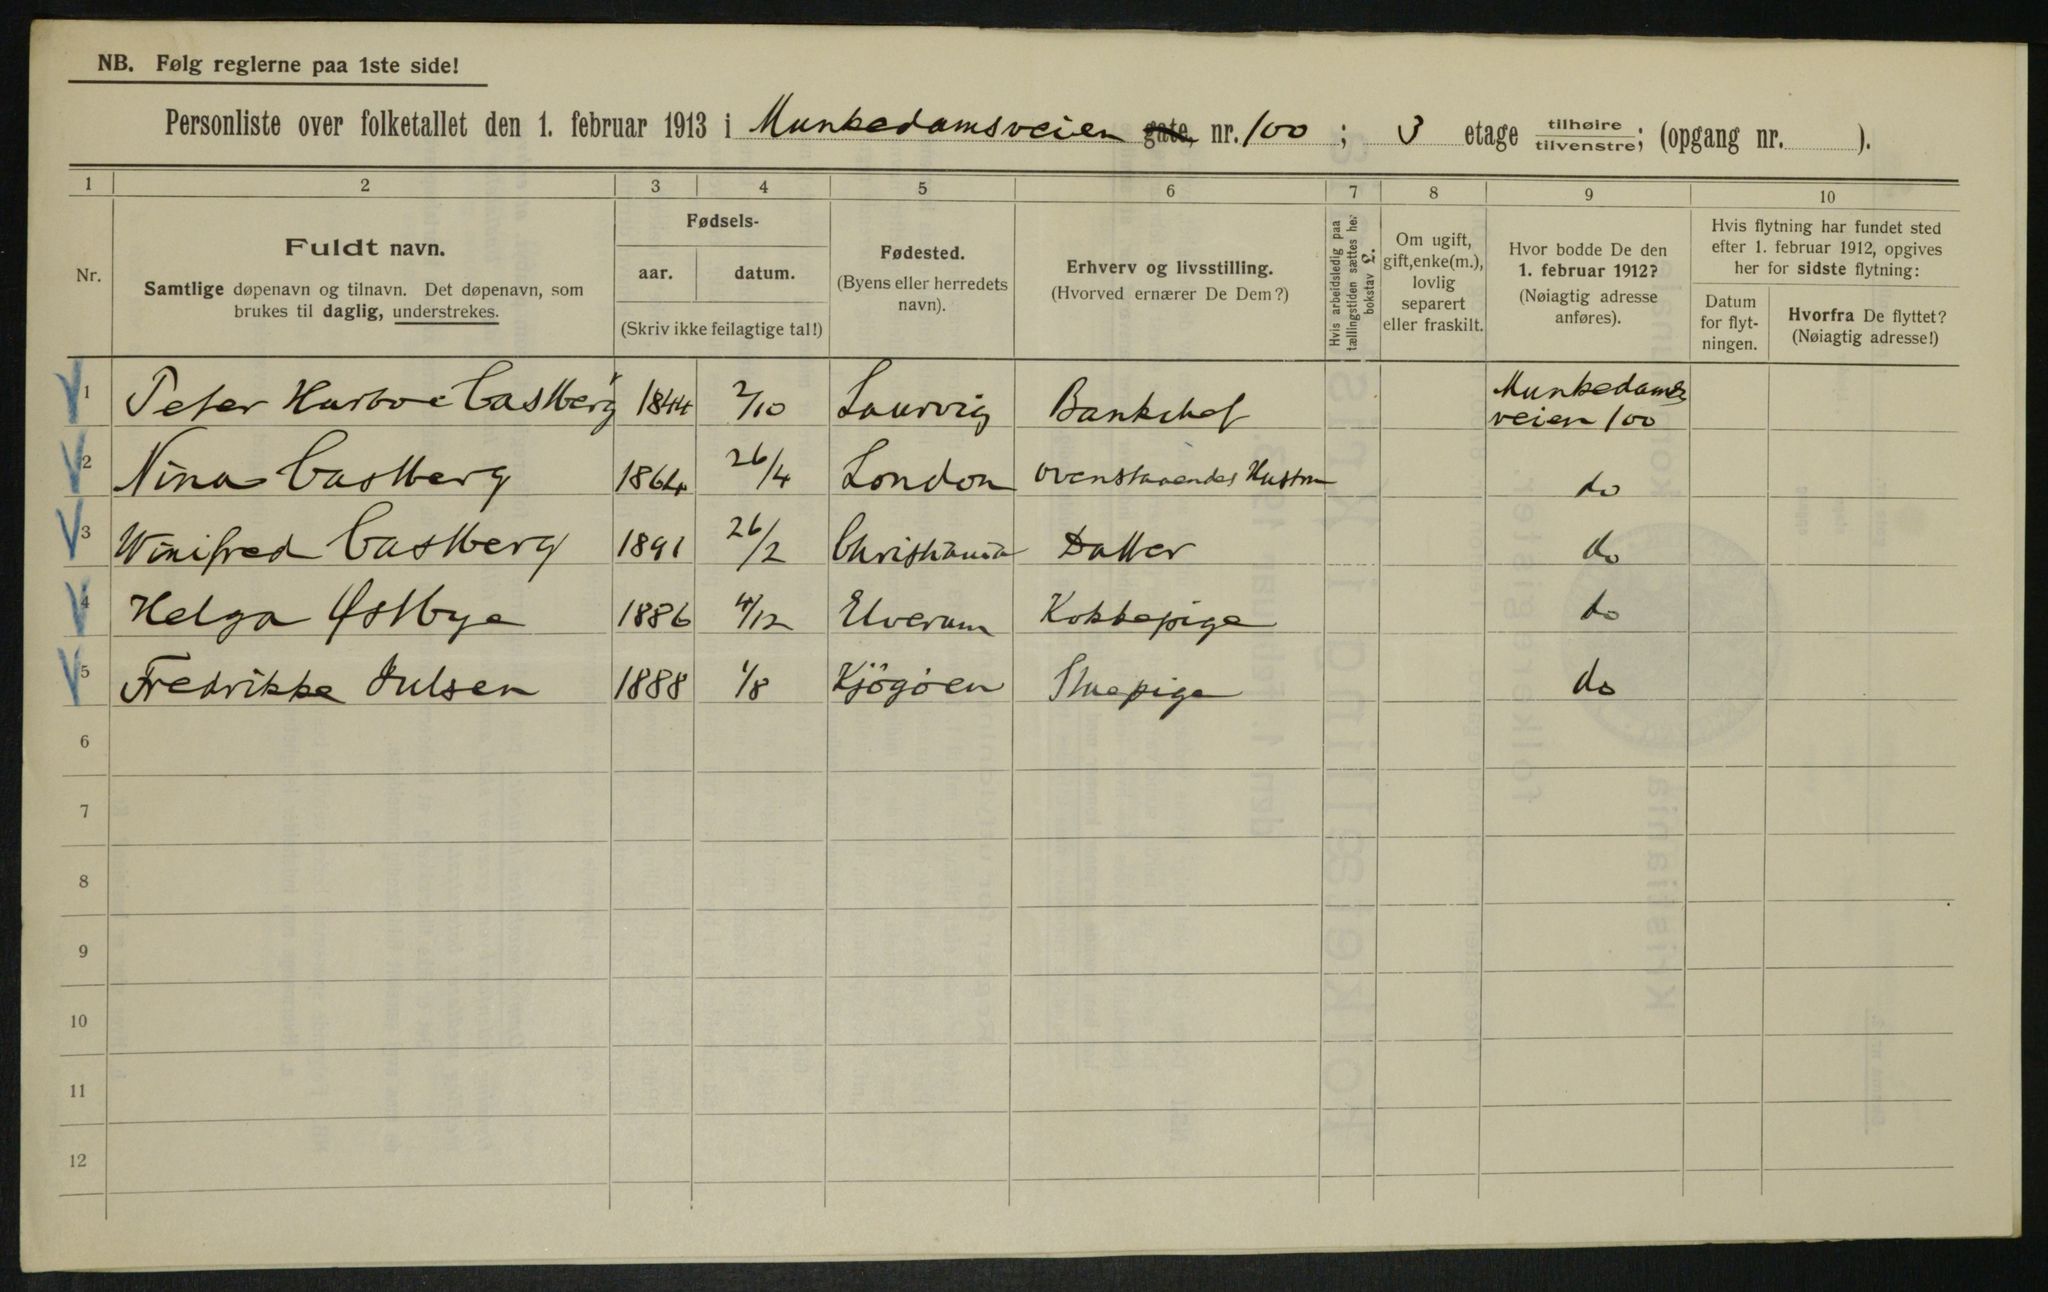 NB. Følg reglerne paa 1ste side!
Personliste over folketallet den 1. februar 1913 i Munkedamsveien gate, nr. 100 ; 3 etage tilhøire tilvenstre; (opgang nr. ).
1 2 3 4 5 6 7 8 9 10
Nr.
Fuldt navn.
Samtlige døpenavn og tilnavn. Det døpenavn, som
brukes til daglig, understrekes.
Fødsels-
aar. datum.
(Skriv ikke feilagtige tal!)
Fødested.
(Byens eller herredets
navn).
Erhverv og livsstilling.
(Hvorved ernærer De Dem?)
Hvis arbeidsledig paa
tællingstiden sættes her
bokstav L.
Om ugift,
gift, enke(m.),
lovlig
separert
eller fraskilt.
Hvor bodde De den
1. februar 1912?
(Nøiagtig adresse
anføres).
Hvis flytning har fundet sted
efter 1. februar 1912, opgives
her for sidste flytning:
Datum
for flyt-
ningen.
Hvorfra De flyttet?
(Nøiagtig adresse!)
1 Peter Harboe Castberg 1844 2/10 Laurvig Bankchef Munkedams
veien 100
2 Nina Castberg 1864 26/4 London ovenstaaendes Hustru do
3 Winifred Castberg 1891 26/2 Christiania Datter do
4 Helga Østbye 1886 4/12 Elverum Kokkepige do
5 Fredrikke Julsen 1888 1/8 Kjøgøen Stuepige do
6
7
8
9
10
11
12